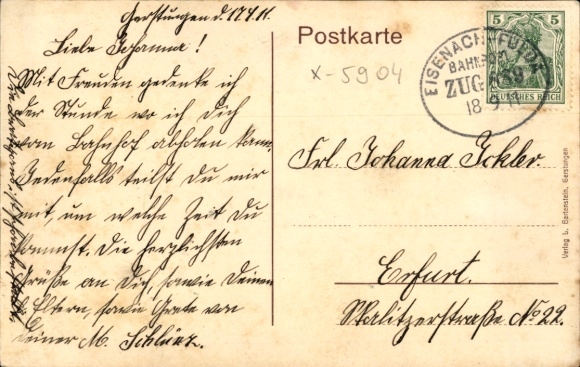 Gerstungen d. 17.9.11.
Liebe Johanna!
Mit Freuden gedenke ich
der Stunde wo ich Dich
vom Bahnhof abholen kann.
Jedenfalls teilst Du mir
mit, um welche Zeit Du
kommst. Die herzlichsten
Grüße an Dich, sowie Deinen
Eltern, sowie Grete von
Deiner M. Schlünz.
Postkarte
X-5904
EISENACH FULDA
BAHNPOST
ZUG
18
5 5
DEUTSCHES REICH
Frl. Johanna Ickler.
Erfurt.
Skalitzerstraße No 22.
Verlag v. Bartenstein, Gerstungen